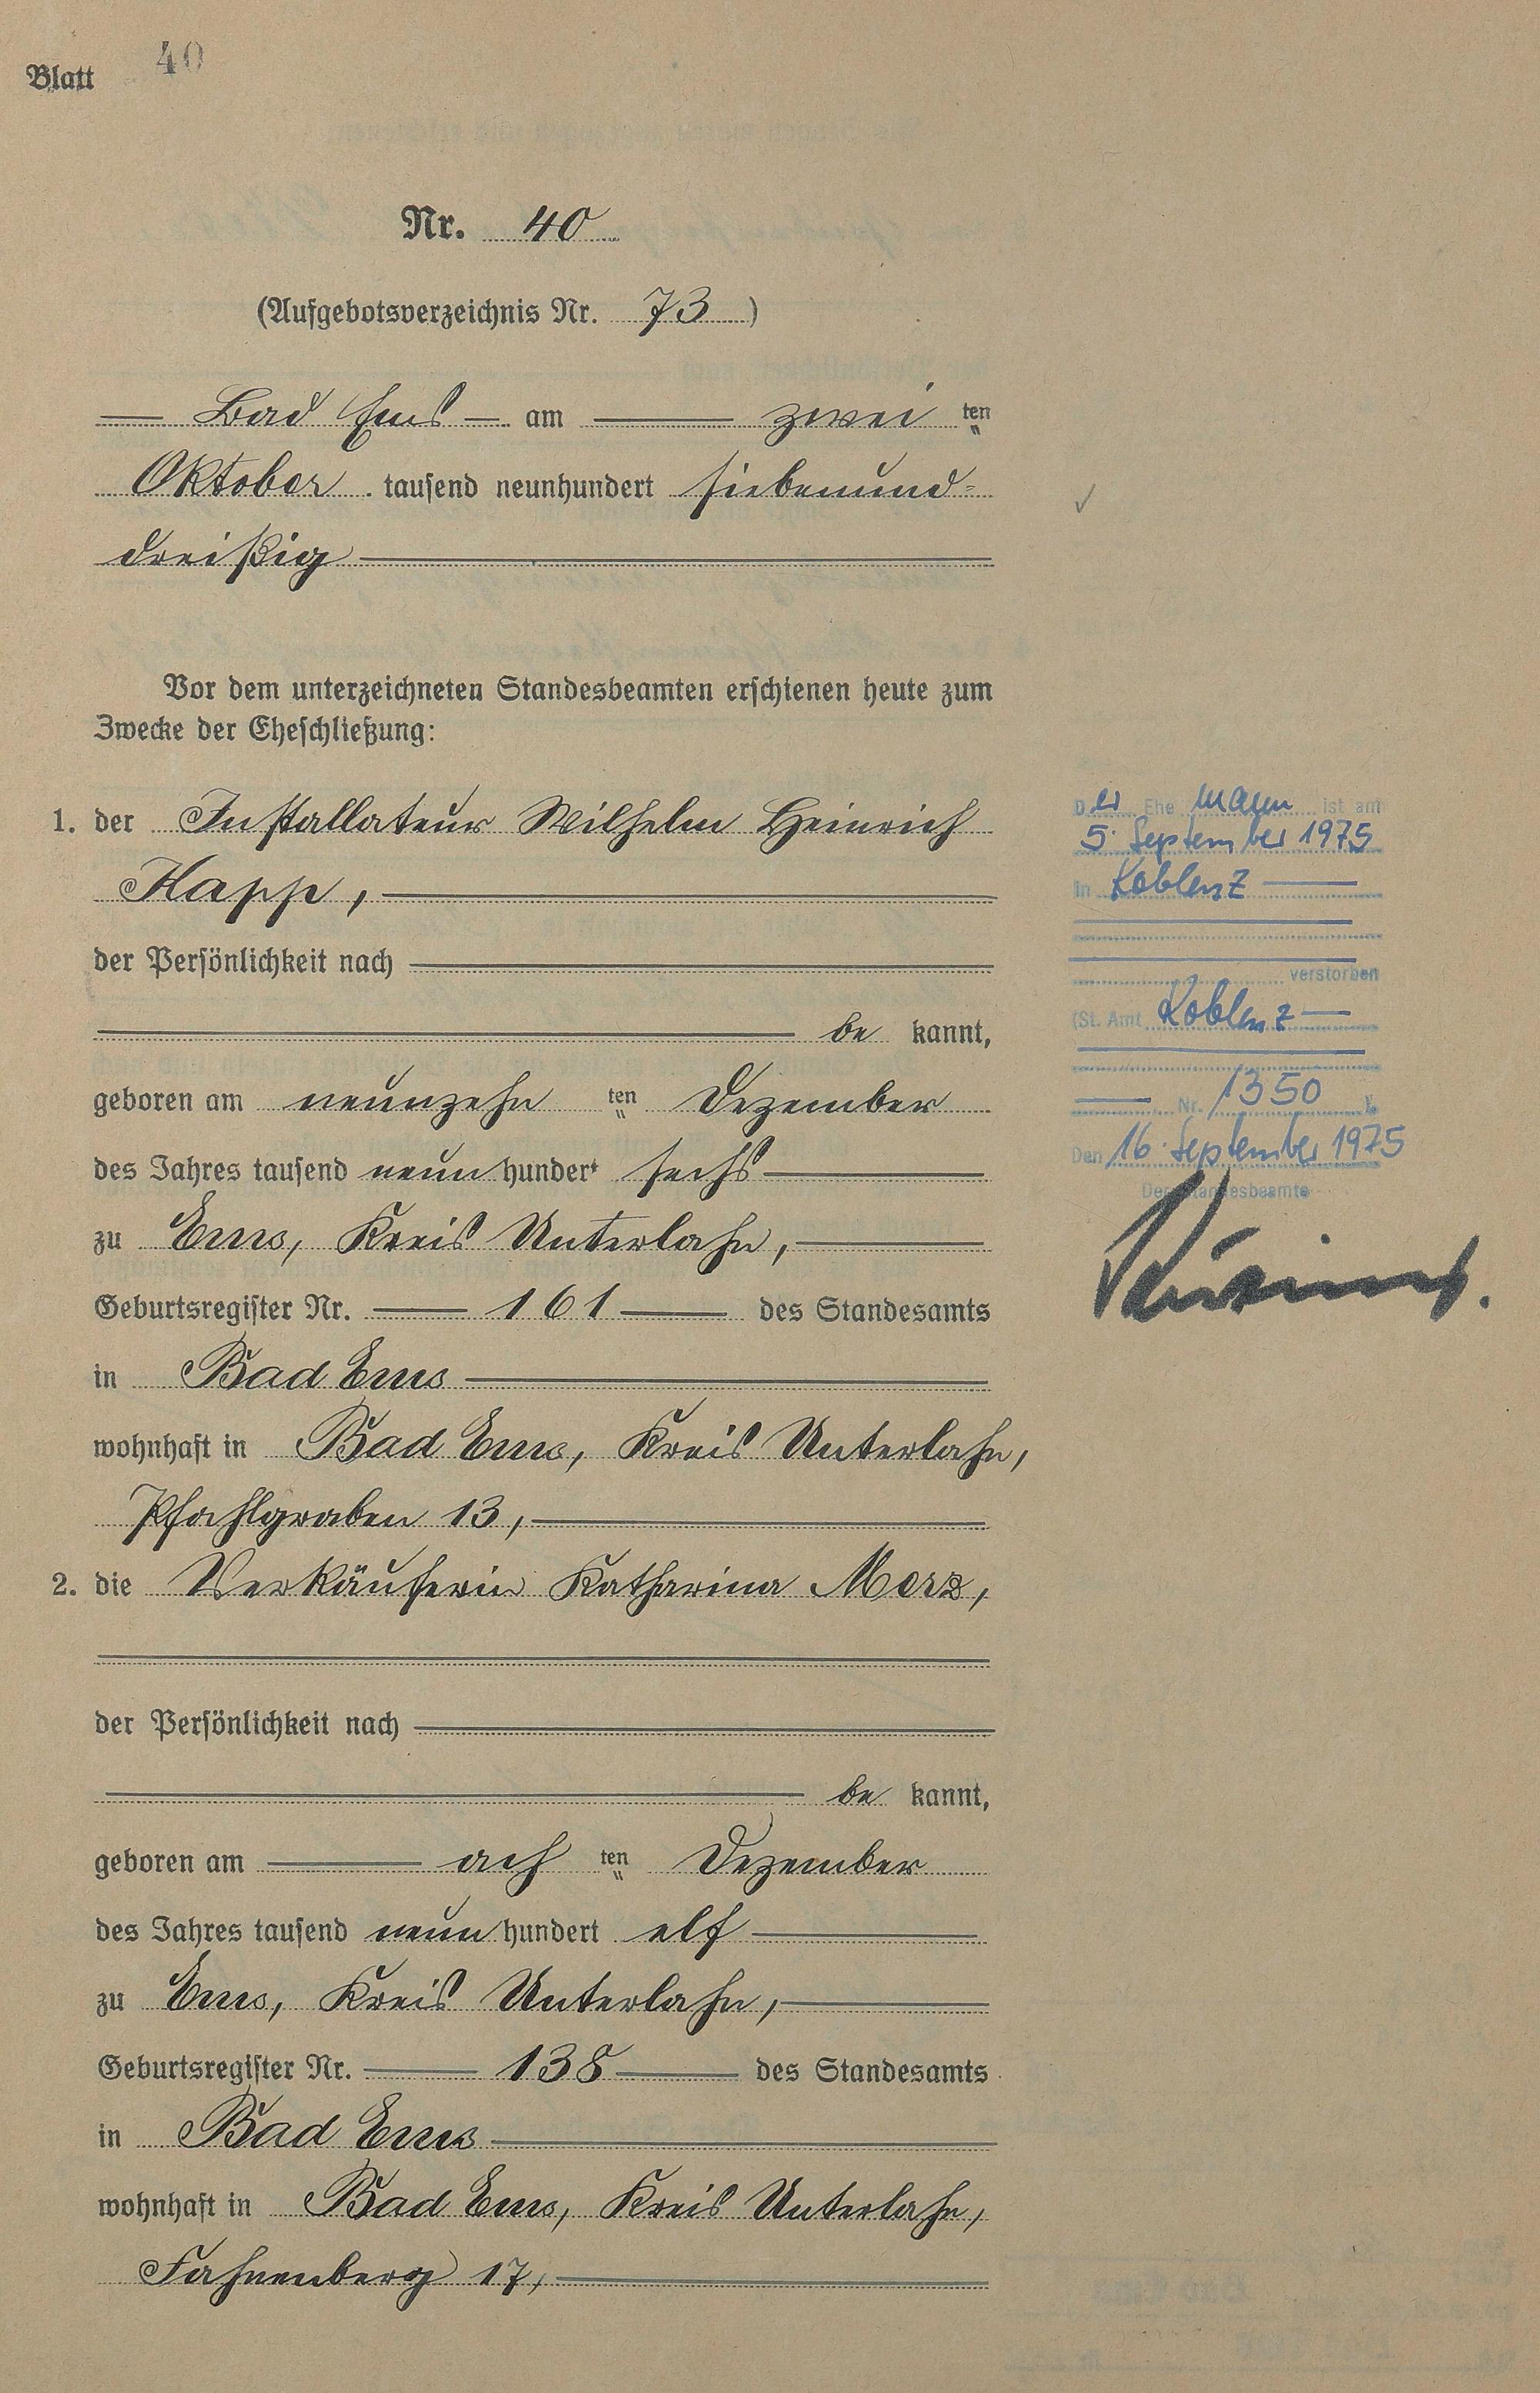 Blatt 40
Nr. 40
(Aufgebotsverzeichnis Nr. 73)
Bad Ems am zwei ten
Oktober tausend neunhundert siebenund=
dreißig
Vor dem unterzeichneten Standesbeamten erschienen heute zum
Zwecke der Eheschließung:
1. der Installateur Wilhelm Heinrich
Kapp,
der Persönlichkeit nach
be kannt,
geboren am neunzehn ten Dezember
des Jahres tausend neun hundert sechs
zu Ems, Kreis Unterlahn,
Geburtsregister Nr. 161 des Standesamts
in Bad Ems
wohnhaft in Bad Ems, Kreis Unterlahn,
Pfahlgraben 13,
2. die Verkäuferin Katharina Merz,
der Persönlichkeit nach
be kannt,
geboren am ach ten Dezember
des Jahres tausend neun hundert elf
zu Ems, Kreis Unterlahn,
Geburtsregister Nr. 138 des Standesamts
in Bad Ems
wohnhaft in Bad Ems, Kreis Unterlahn,
Fahnenberg 17,
Der Ehe mann ist am
5. September 1975
in Koblenz
verstorben
(St. Amt Koblenz
Nr. 1350 )
Den 16. September 1975
Der Standesbeamte